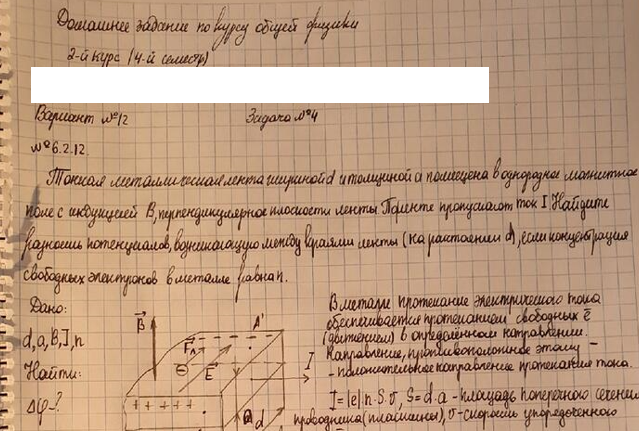 Домашнее задание по курсу общей физики
2-й курс (4-й семестр)
Вариант №12 Задача №4
№6.2.12.
Тонкая металлическая лента шириной d и толщиной a помещена в однородное магнитное
поле с индукцией B, перпендикулярное плоскости ленты. По ленте пропускают ток I. Найдите
разность потенциалов, возникающую между краями ленты (на расстоянии d), если концентрация
свободных электронов в металле равна n.
Дано:
d, a, B, I, n
Найти:
Δφ-?
B A'
Fл
⊖ E I
+ + + + +
a d
В металле протекание электрического тока
обеспечивается протеканием свободных e
(движением) в определённом направлении.
Направление, противоположное этому -
- положительное направление протекания тока.
I=|e|·n·S·v, S=d·a - площадь поперечного сечения
проводника (пластины), v - скорость упорядоченного